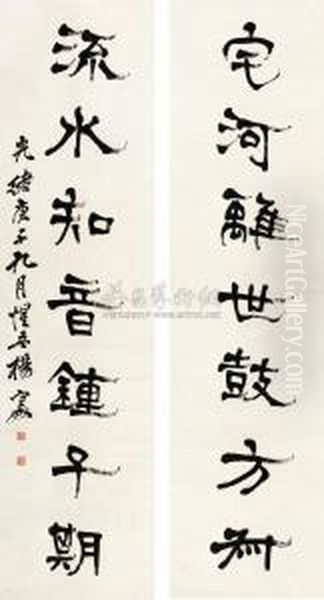 宅河離世鼓方
流水知音鍾子期
光緒庚子九月惺吾楊守敬
NiceArtGallery.com